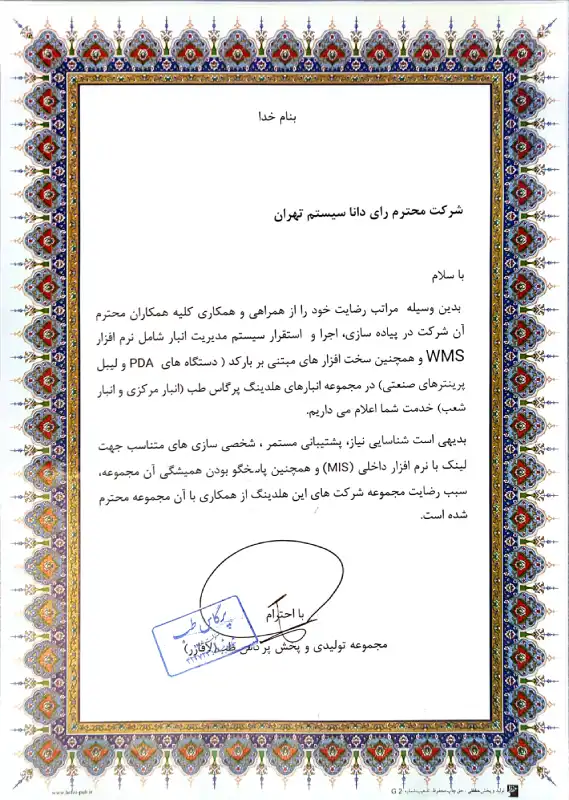 بنام خدا
شرکت محترم رای دانا سیستم تهران
با سلام
بدین وسیله مراتب رضایت خود را از همراهی و همکاری کلیه همکاران محترم
آن شرکت در پیاده سازی، اجرا و استقرار سیستم مدیریت انبار شامل نرم افزار
WMS و همچنین سخت افزار های مبتنی بر بارکد ( دستگاه های PDA و لیبل
پرینترهای صنعتی) در مجموعه انبارهای هلدینگ پرگاس طب (انبار مرکزی و انبار
شعب) خدمت شما اعلام می داریم.
بدیهی است شناسایی نیاز، پشتیبانی مستمر ، شخصی سازی های متناسب جهت
لینک با نرم افزار داخلی (MIS) و همچنین پاسخگو بودن همیشگی آن مجموعه،
سبب رضایت مجموعه شرکت های این هلدینگ از همکاری با آن مجموعه محترم
شده است.
با احترام
پرگاس طب
مجموعه تولیدی و پخش پرگاس طب (لافارر)
G 2